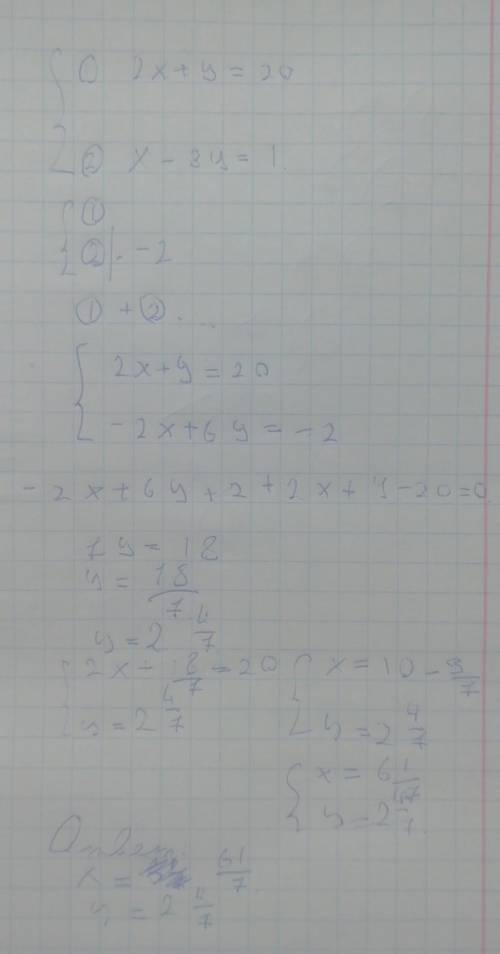 ① 2x + y = 20
② x - 3y = 1
①
② | · -2
① + ②
2x + y = 20
-2x + 6y = -2
-2x + 6y + 2 + 2x + y - 20 = 0
7y = 18
y = 18/7
y = 2 4/7
2x + 18/7 = 20
y = 2 4/7
x = 10 - 9/7
y = 2 4/7
x = 6 1/7
y = 2 4/7
Ответ:
x = 61/7
y = 2 4/7